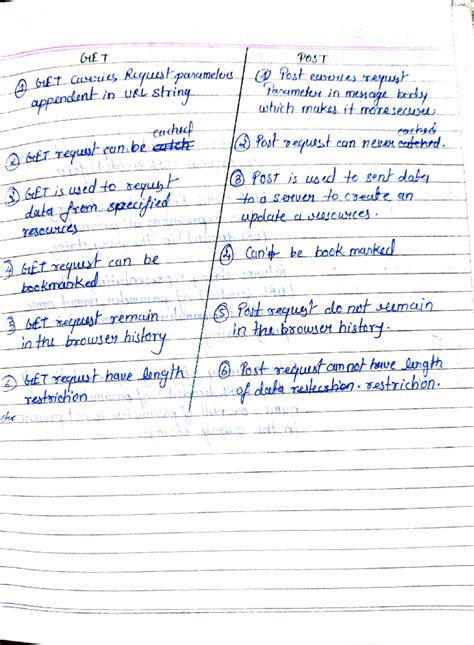 GET
① GET Carries Request parameters
appendent in URL string
② GET request can be cached
③ GET is used to request
data from specified
resources
④ GET request can be
bookmarked
5 GET request remain
in the browser history
6 GET request have length
restriction
POST
① Post carries request
Parameter in message body
which makes it more secure
② Post request can never cached.
③ POST is used to sent data
to a server to create an
update a resources.
④ Can't be book marked
⑤ Post request do not remain
in the browser history.
⑥ Post request cannot have length
of data restriction.